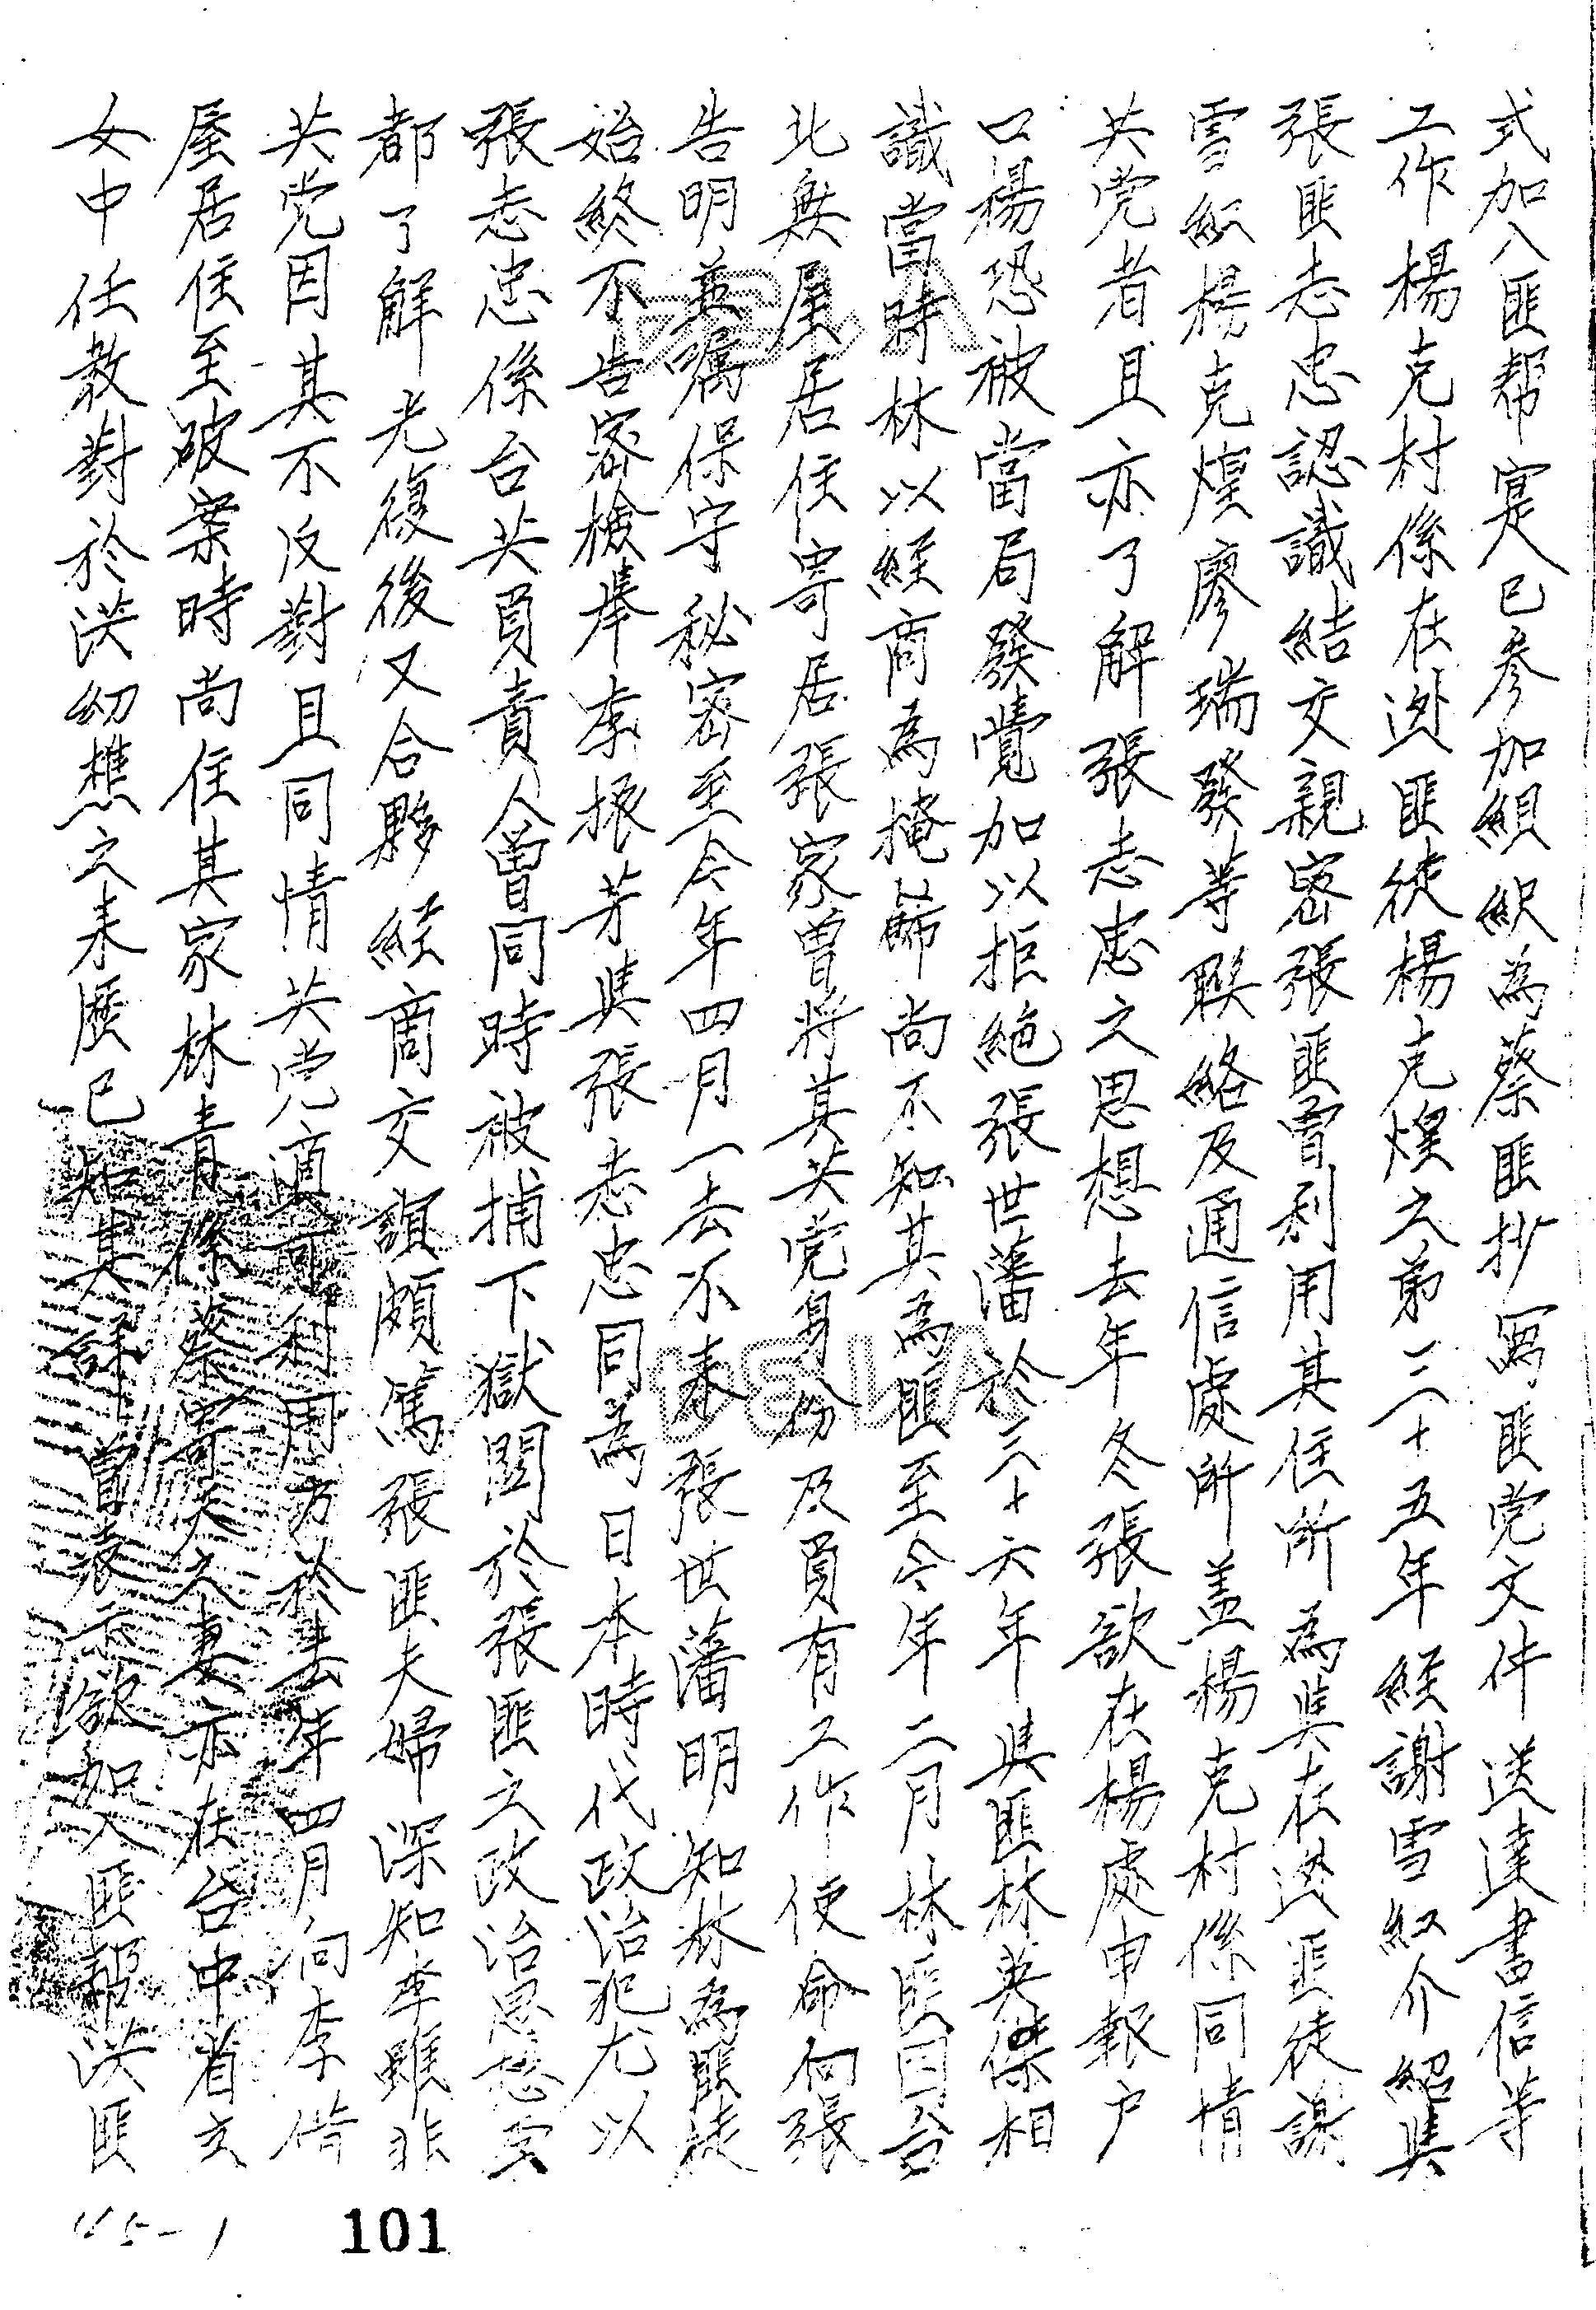 式加入匪帮寔已參加組織為蔡匪抄寫匪党文件送達書信等
工作楊克村係在逃匪徒楊克煌之弟三十五年經謝雪紅介紹與
張匪志忠認識結交親密張匪曾利用其住所為與在逃匪徒謝
雪紅楊克煌廖瑞發等联絡及通信處所盖楊克村係同情
共党者且亦了解張志忠之思想去年冬張欲在楊處申報户
口楊恐被當局發覺加以拒絶張世藩於三十六年與匪林英傑相
識當時林以經商為掩飾尚不知其為匪至今年二月林匪因台
北無屋居住寄居張家曾將其共党身份及負有工作使命向張
告明並嘱保守秘密至今年四月一去不来張世藩明知林為匪徒
始終不告密檢舉李振芳與張志忠同為日本時代政治犯尤以
張志忠係台共負責人曾同時被捕下獄関於張匪之政治思想李
都了解光復後又合夥經商交誼頗篤張匪夫婦深知李雖非
共党因其不反對且同情共党適可利用乃於去年四月向李借
屋居住至破案時尚住其家林青係蔡寄天之妻亦在台中省立
女中任教對於洪幼樵之来歷已知其詳曾表示欲加入匪帮洪匪
45-1
101